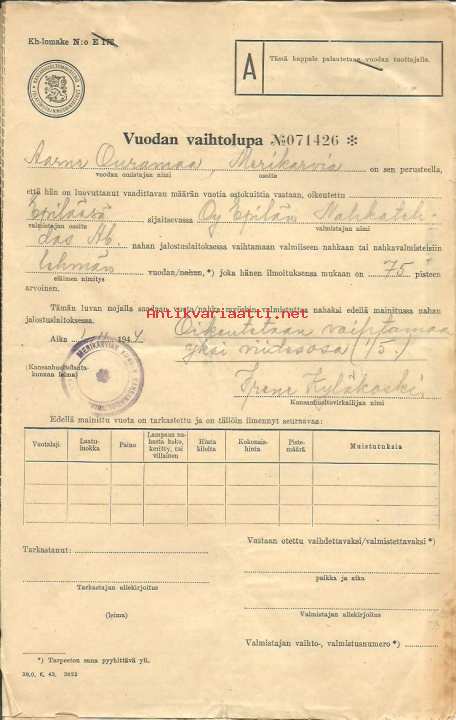 Kh-lomake N:o E 178
A
Tästä kappale palautetaan vuodan tuottajalle.
KANSANHUOLTOMINISTERIÖ
Vuodan vaihtolupa № 071426 *
Aarne Ouramaa, Merikarvia on sen perusteella,
vuodan omistajan nimi osoite
että hän on luovuttanut vaadittavan määrän vuotia ostokuittia vastaan, oikeutettu
sijaitsevassa Oy Nahkateh-
valmistajan osoite valmistajan nimi
das Ab. nahan jalostuslaitoksessa vaihtamaan valmiiseen nahkaan tai nahkavalmisteisiin
lehmän vuodan/nahan, *) joka hänen ilmoituksensa mukaan on 75 pisteen
eläimen nimitys
arvoinen.
Tämän luvan nojalla saadaan nahaksi edellä mainitussa nahan
jalostuslaitoksessa.
Antikvariaatti.net
Aika 1944 Oikeutetaan vaihtamaan
yksi viidesosa (1/5.)
(Kansanhuoltolautakunnan leima)
MERIKARVIAN
Irene Kyläkoski
Kansanhuoltovirkailijan nimi
Edellä mainittu vuota on tarkastettu ja on tällöin ilmennyt seuraavaa:
Vuotalaji Laatuluokka Paino Lampaan nahasta koko, keritty, tai villainen Hinta kilolta Kokonaishinta Pistemäärä Muistutuksia
Tarkastanut: Vastaan otettu vaihdettavaksi/valmistettavaksi *)
paikka ja aika
Tarkastajan allekirjoitus
Valmistajan allekirjoitus
(leima)
Valmistajan vaihto-, valmistusnumero *)
*) Tarpeeton sana pyyhittävä yli.